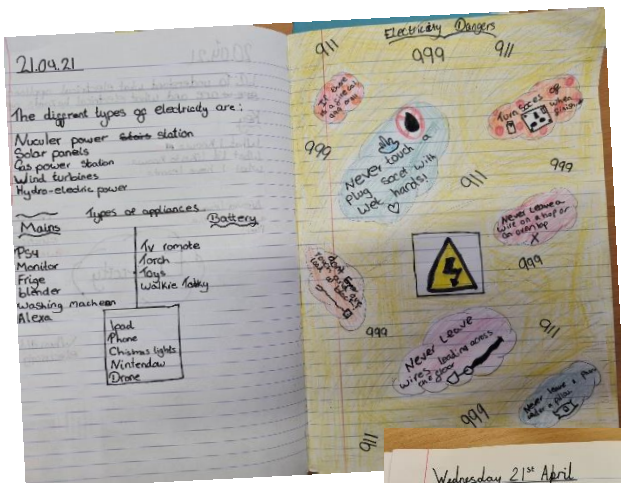 21.04.21
The different types of electricity are:
Nuculer power station
Solar panels
Gas power station
Wind turbines
Hydro-electric power
Types of appliances
Mains
Battery
Ps4
Monitor
Frige
blender
Washing macheen
Alexa
Tv romote
Torch
Toys
Walkie Talky
Ipad
Phone
Chistmas lights
Nintendow
Drone
Electricity Dangers
911
999
911
Turn soces of
when
finish
999
Never touch a
plug socet with
wet hands!
911
999
Never Leave a
wire on a hop or
an oven top
X
999
999
Never Leave
wires leading across
the floor
911
Never leave a phone
under a pillow
999
911
Wednesday 21st April